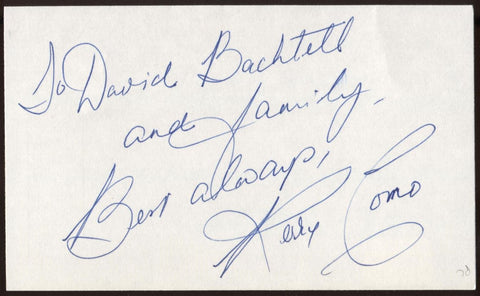 To David Bachtell
and family,
Best always,
Perry Como